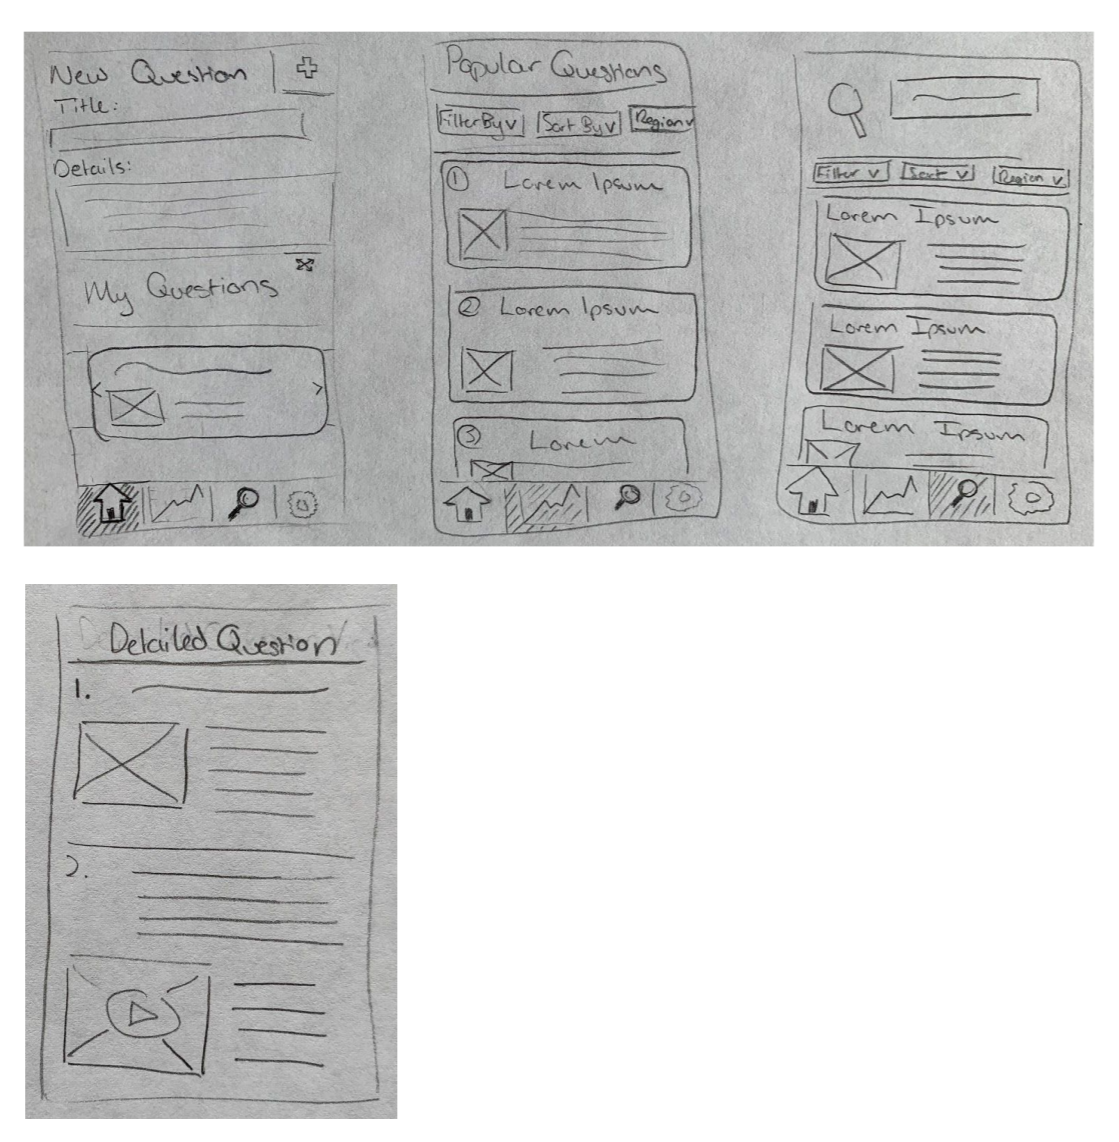 New Question
Title:
Details:
My Questions
Popular Questions
Filter By v
Sort By v
Region v
1 Lorem Ipsum
2 Lorem Ipsum
3 Lorem
Filter v
Sort v
Region v
Lorem Ipsum
Lorem Ipsum
Lorem Ipsum
Detailed Question
1.
2.